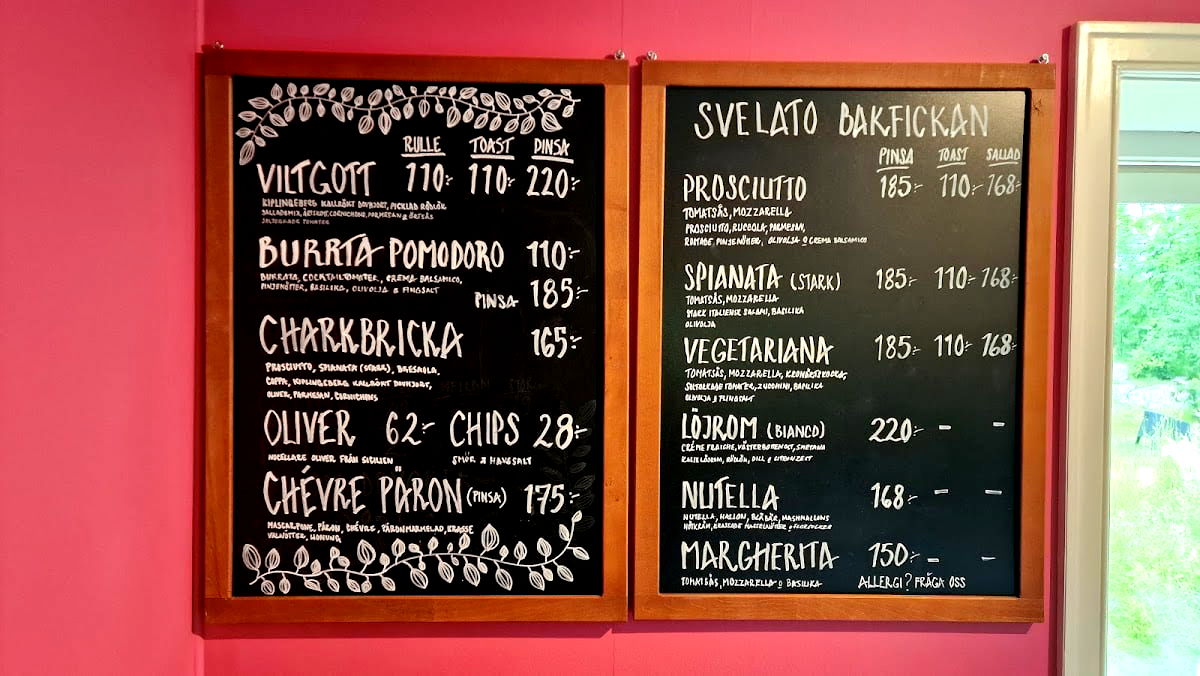 RULLE TOAST PINSA
VILTGOTT 110:- 110:- 220:-
KIPLINGEBERG KALLRÖKT DOVHJORT, PICKLAD RÖDLÖK
SALLADSMIX, CORNICHONS, PARMESAN &
SOLTORKADE TOMATER
BURRTA POMODORO 110:-
BURRATA, COCKTAILTOMATER, CREMA BALSAMICO,
PINJENÖTTER, BASILIKA, OLIVOLJA & FLINGSALT
PINSA 185:-
CHARKBRICKA 165:-
PROSCIUTTO, SPIANATA (STARK), BRESAOLA,
COPPA, KIPLINGEBERG KALLRÖKT DOVHJORT,
OLIVER, PARMESAN, CORNICHONS
OLIVER 62:- CHIPS 28:-
NOCELLARE OLIVER FRÅN SICILIEN SMÖR & HAVSSALT
CHÉVRE PÄRON (PINSA) 175:-
MASCARPONE, PÄRON, CHÉVRE, PÄRONMARMELAD, KRASSE
VALNÖTTER, HONUNG
SVELATO BAKFICKAN
PINSA TOAST SALLAD
PROSCIUTTO 185:- 110:- 168:-
TOMATSÅS, MOZZARELLA
PROSCIUTTO, RUCCOLA, PARMESAN,
ROSTADE PINJENÖTTER, OLIVOLJA & CREMA BALSAMICO
SPIANATA (STARK) 185:- 110:- 168:-
TOMATSÅS, MOZZARELLA
STARK ITALIENSK SALAMI, BASILIKA
OLIVOLJA
VEGETARIANA 185:- 110:- 168:-
TOMATSÅS, MOZZARELLA, KRONÄRTSKOCKA,
SOLTORKADE TOMATER, ZUCCHINI, BASILIKA
OLIVOLJA & FLINGSALT
LÖJROM (BIANCO) 220:- - -
CRÉME FRAICHE, VÄSTERBOTTENOST, SMETANA
KALIX LÖJROM, RÖDLÖK, DILL & CITRONZEST
NUTELLA 168:- - -
NUTELLA, HALLON, BLÅBÄR, MASHMALLOWS
MARGHERITA 150:- - -
TOMATSÅS, MOZZARELLA & BASILIKA
ALLERGI? FRÅGA OSS